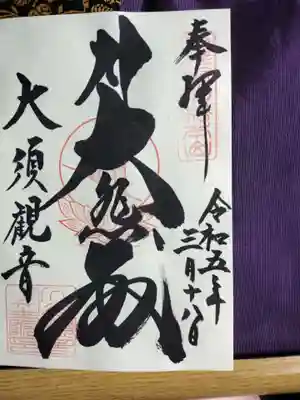 奉拝
令和五年
三月十八日
大悲殿
大須観音